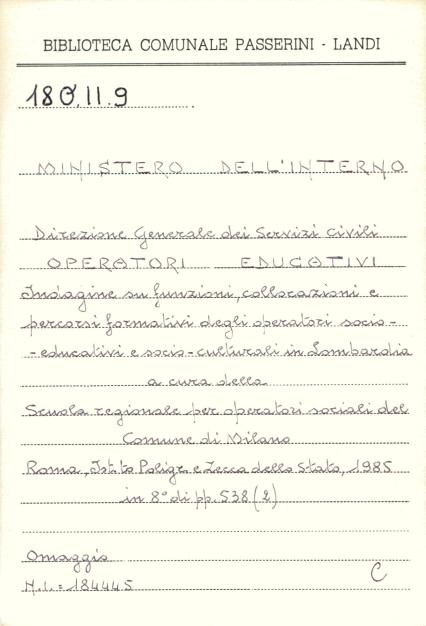 BIBLIOTECA COMUNALE PASSERINI - LANDI
180.II.9
MINISTERO DELL'INTERNO
Direzione Generale dei Servizi Civili
OPERATORI EDUCATIVI
Indagine su funzioni, collocazioni e
percorsi formativi degli operatori socio-
-educativi e socio-culturali in Lombardia
a cura della
Scuola regionale per operatori sociali del
Comune di Milano
Roma, Ist.to Poligr. e Zecca dello Stato, 1985
in 8° di pp. 538 (2)
Omaggio
N.I. = 184445
C